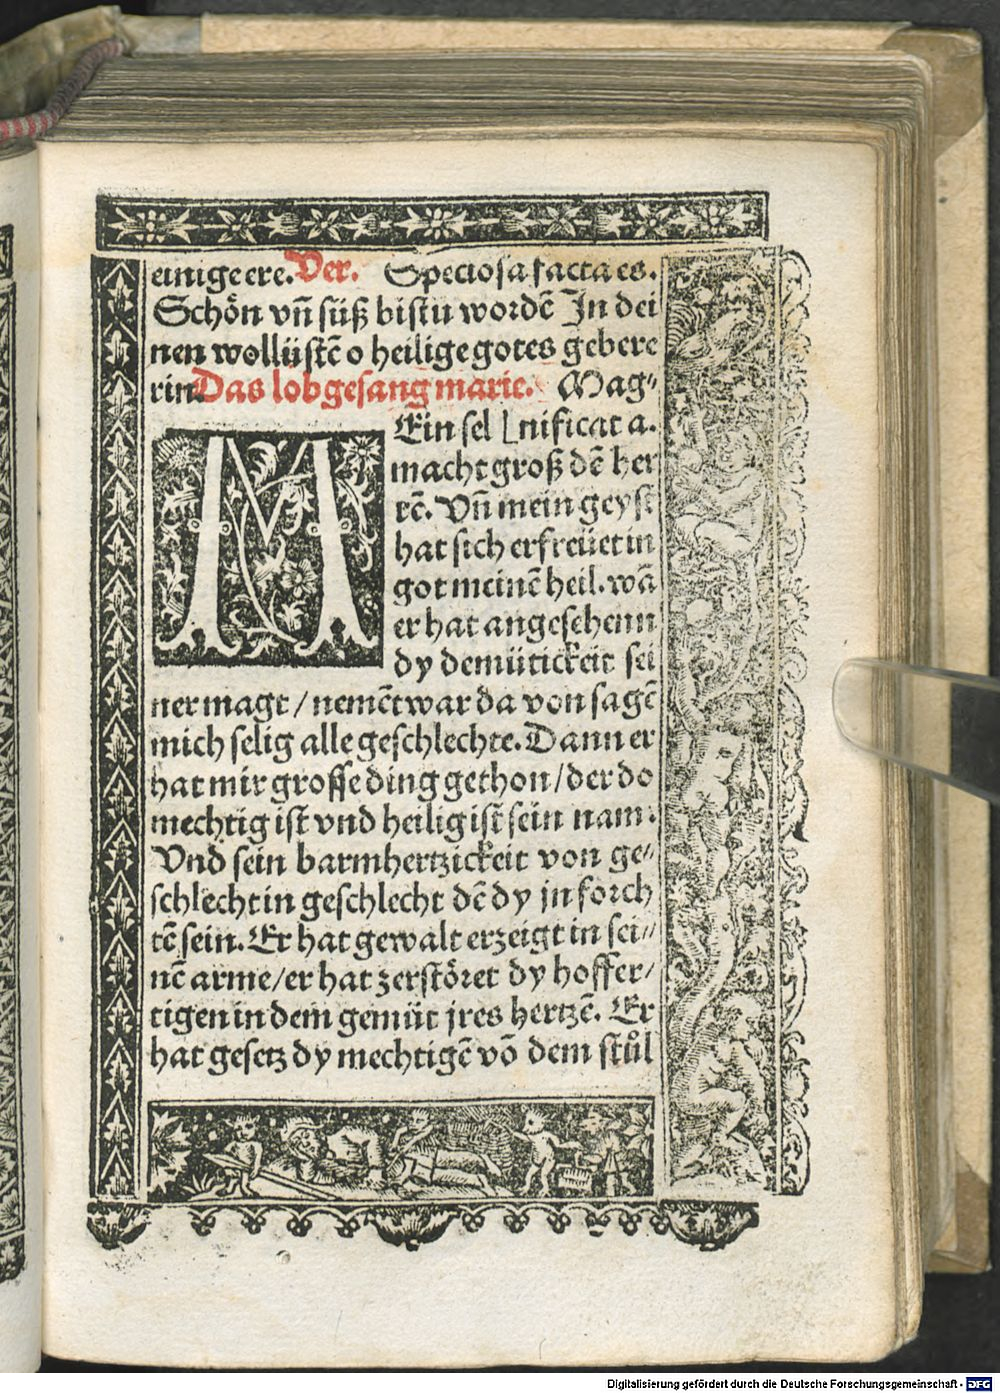 einige ere. Ver. Speciosa facta es.
Schön vñ süß bistu wordẽ In dei
nen wollüstẽ o heilige gotes gebere
rin Das lobgesang marie. Mag⸗
Ein sel ⌊nificat a.
M
macht groß dẽ her
rẽ. Vñ mein geyst
hat sich erfreüet in
got meinẽ heil. wã
er hat angesehenn
dy demütickeit sei
ner magt / nemẽt war da von sagẽ
mich selig alle geschlechte. Dann er
hat mir grosse ding gethon / der do
mechtig ist vnd heilig ist sein nam.
Vnd sein barmhertzickeit von ge⸗
schlecht in geschlecht dẽ dy jn forch
tẽ sein. Er hat gewalt erzeigt in sei⸗
nẽ arme / er hat zerstöret dy hoffer/
tigen in dem gemüt jres hertzẽ. Er
hat gesetz dy mechtigẽ võ dem stůl
Digitalisierung gefördert durch die Deutsche Forschungsgemeinschaft - DFG